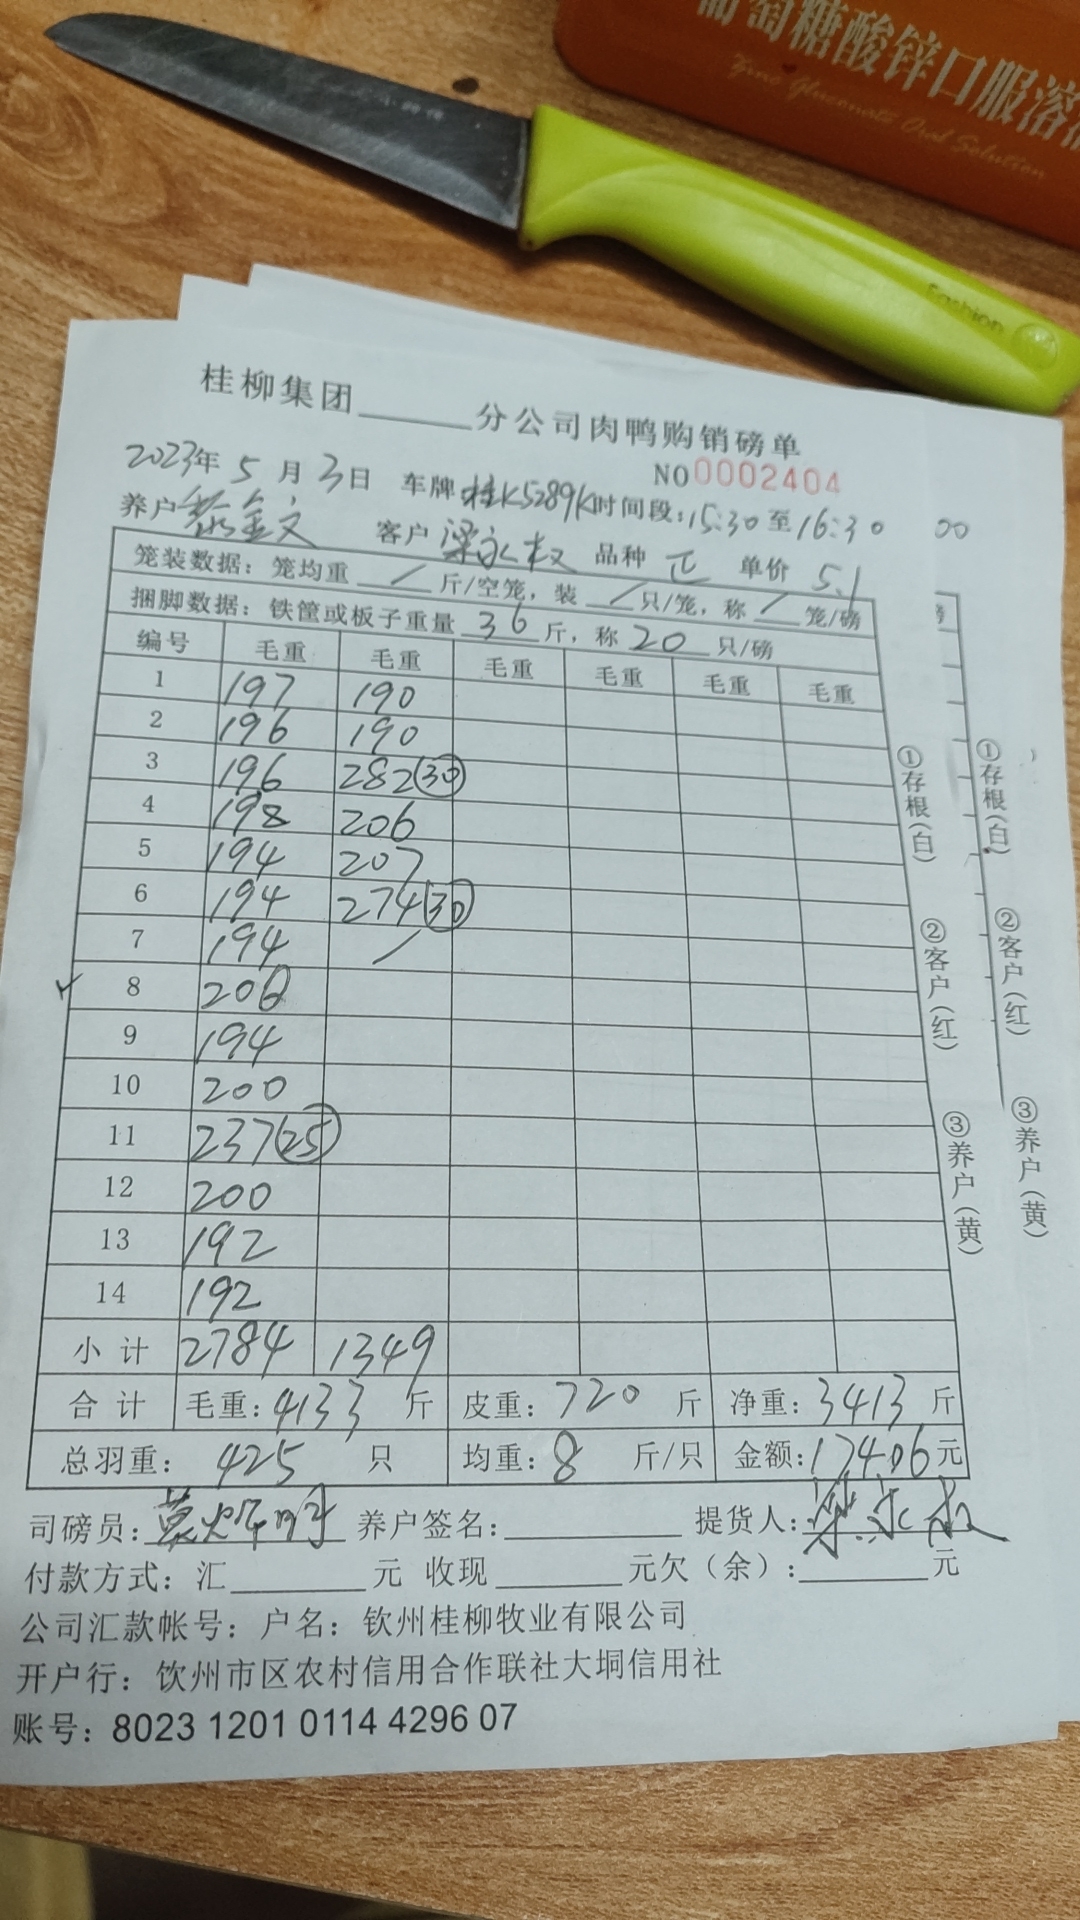 葡萄糖酸锌口服溶液
Zinc Gluconate Oral Solution
Fashion
桂柳集团______分公司肉鸭购销磅单
NO 0002404
2023年 5 月 3日 车牌 桂K5289K 时间段:15:30 至 16:30
00
养户 金文 客户 梁永权 品种 正 单价 5.1
笼装数据: 笼均重 / 斤/空笼, 装 / 只/笼, 称 / 笼/磅
捆脚数据: 铁筐或板子重量 36 斤, 称 20 只/磅
编号 毛重 毛重 毛重 毛重 毛重 毛重
1 197 190
2 196 190
3 196 282(30)
4 198 206
5 194 207
6 194 274(30)
7 194 /
8 200
9 194
10 200
11 237(25)
12 200
13 192
14 192
小 计 2784 1349
合 计 毛重: 4133 斤 皮重: 720 斤 净重: 3413 斤
总羽重: 425 只 均重: 8 斤/只 金额: 17406元
司磅员: 养户签名:______ 提货人: 梁永权
付款方式: 汇______元 收现______元欠(余):______元
公司汇款帐号: 户名: 钦州桂柳牧业有限公司
开户行: 钦州市区农村信用合作联社大垌信用社
账号: 8023 1201 0114 4296 07
①存根(白) ②客户(红) ③养户(黄)
①存根(白) ②客户(红) ③养户(黄)